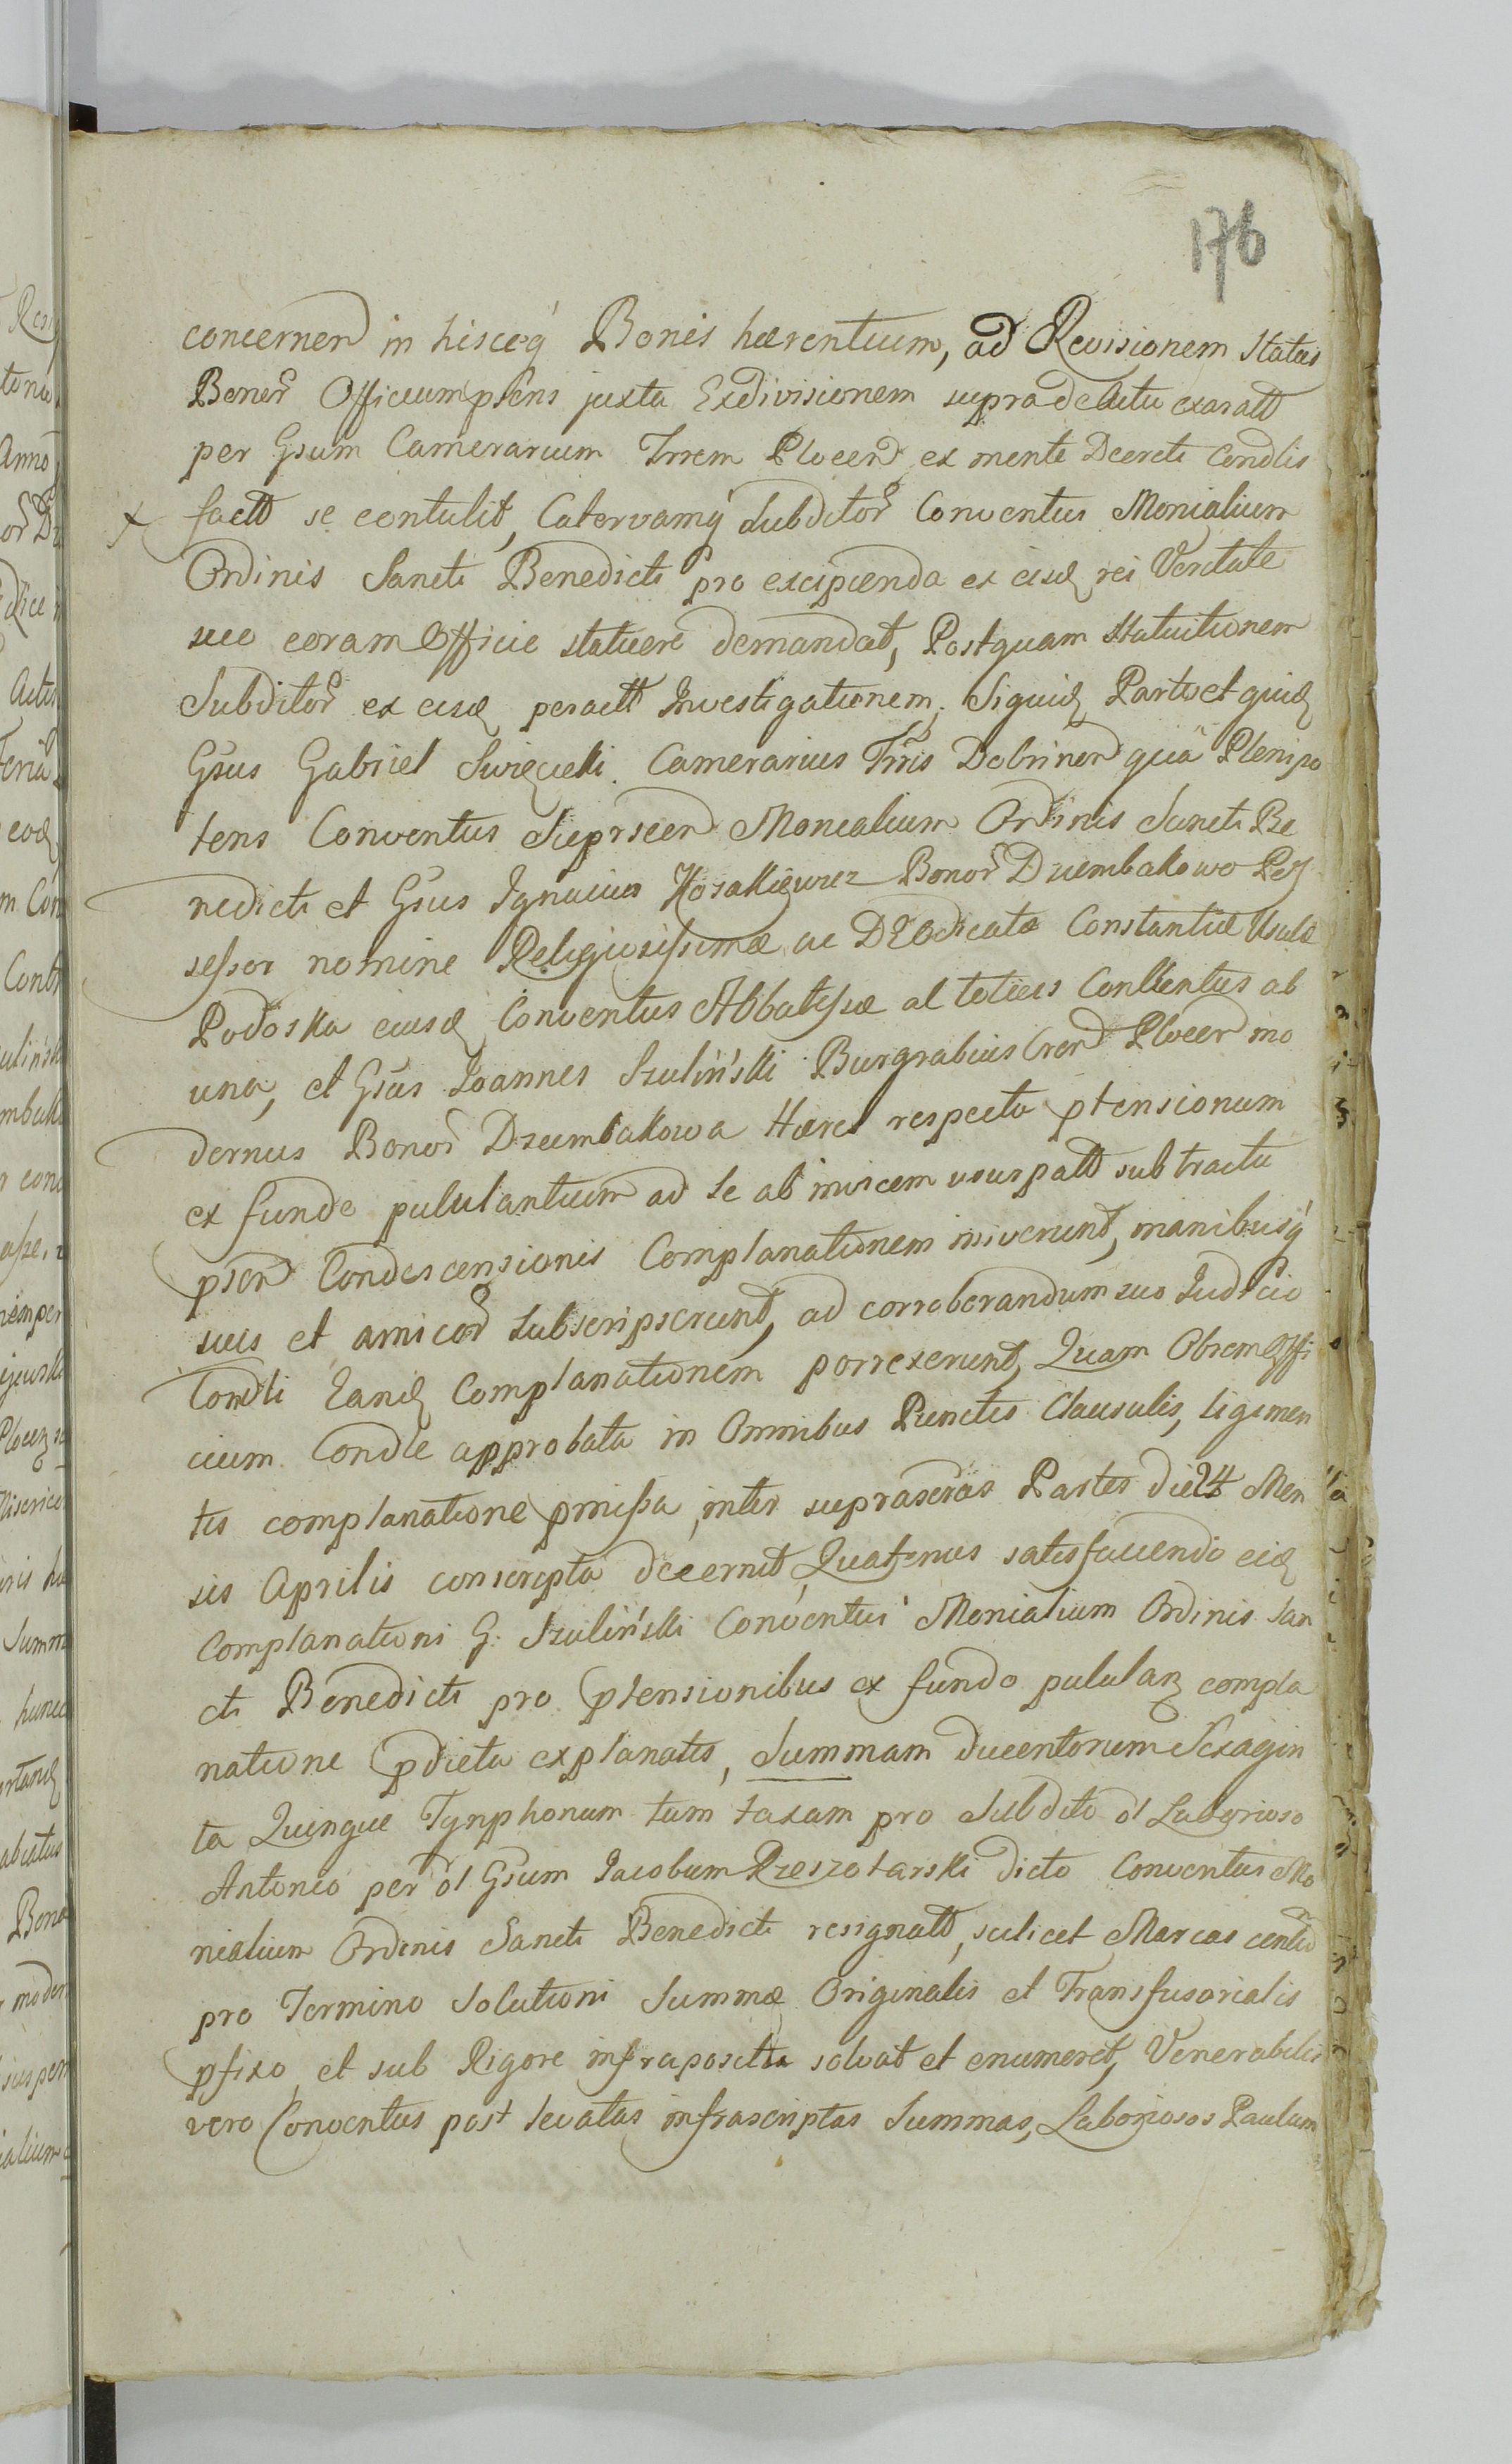 176
concernen in hisceq́ Bonis hærentium, ad Revisionem Status
Bonor Officium psens juxta Exdivisionem supradebitu exaratt
per Gsum Camerarium Trrem Plocen ex mente Decreti Condlis
x factt se contulit, Catervamq́ Subditor Conventus Monialium
Ordinis Sancti Benedicti pro excipienda ex eisd rei Veritate
suo coram Officio statuere demandat, Postquam Statuitionem
Subditor ex eisd peractt Investigationem, Siquid Partes et quid
Gsus Gabriel Swięcicki Camerarius Trris Dobrinen quà Plenipo
tens Conventus Suprscen Monialium Ordinis Sancti Be
nedicti et Gsus Ignacius Kosakiewicz Bonor Dziembakowo Pos
sessor nomine Religiosissimæ ac Dicatæ Constantiæ
Podoska eiusd Conventus Abbatissæ al totius Conventus ab
una, et Gsus Joannes Szuliński Burgrabius Cren Plocen mo
dernus Bonor Dziembakowa Hæres respectu ptensionum
ex fundo pululantium ad se ab invicem usurpatt sub tractu
psen Condescensionis Complanationem iniverunt, manibusq́
suis et amicor subscripserunt, ad corroborandum suo Judicio
Condli Eand Complanationem porrexerunt, Quam Obrem Offi
cium Condle approbata in Omnibus Punctis Clausulis, ligamen
tis complanatione pmissa, inter suprascras Partes die 24 Men
sis Aprilis conscripta decernit, Quatenus satisfaciendo eid
Complanationi G: Szuliński Conventui Monialium Ordinis San
cti Benedicti pro ptensionibus ex fundo pululan compla
natione pdicta explanatis, Summam ducentorum Sexagin
ta Quinque Tynphonum tum taxam pro Subdito ol Laborioso
Antonio per ol Gsum Jacobum Rzeszotarski dicto Conventui Mo
nialium Ordinis Sancti Benedicti resignatt, scilicet Marcas centu
pro Termino Solutioni Summæ Originalis et Transfusorialis
pfixo, et sub Rigore infraposito solvat et enumeret, Venerabilis
vero Conventus post levatas infrascriptas Summas, Laboriosos Paulum